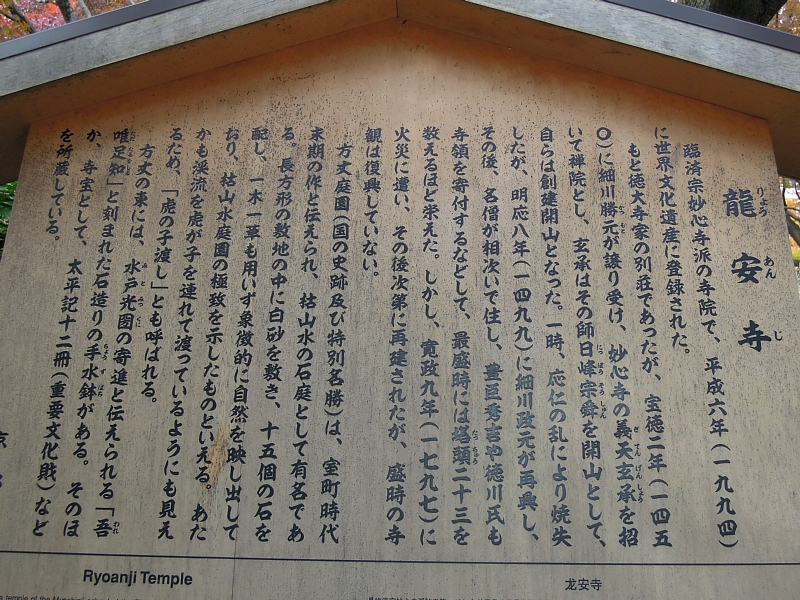 龍安寺
りょうあんじ
臨済宗妙心寺派の寺院で、平成六年(一九九四)
に世界文化遺産に登録された。
もと徳大寺家の別荘であったが、宝徳二年(一四五
〇)に細川勝元が譲り受け、妙心寺の義天玄承を招
いて禅院とし、玄承はその師日峰宗舜を開山として、
自らは創建開山となった。一時、応仁の乱により焼失
したが、明応八年(一四九九)に細川政元が再興し、
その後、名僧が相次いで住し、豊臣秀吉や徳川氏も
寺領を寄付するなどして、最盛時には塔頭二十三を
数えるほど栄えた。しかし、寛政九年(一七九七)に
火災に遭い、その後次第に再建されたが、盛時の寺
観は復興していない。
方丈庭園(国の史跡及び特別名勝)は、室町時代
末期の作と伝えられ、枯山水の石庭として有名であ
る。長方形の敷地の中に白砂を敷き、十五個の石を
配し、一木一草も用いず象徴的に自然を映し出して
おり、枯山水庭園の極致を示したものといえる。あた
かも渓流を虎が子を連れて渡っているようにも見え
るため、「虎の子渡し」とも呼ばれる。
方丈の東には、水戸光圀の寄進と伝えられる「吾
唯足知」と刻まれた石造りの手水鉢がある。そのほ
か、寺宝として、太平記十二冊(重要文化財)など
を所蔵している。
京
Ryoanji Temple
龙安寺